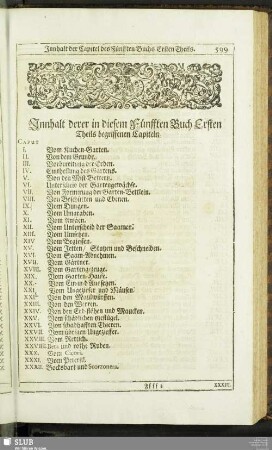 Innhalt der Capitel des Fünfften Buchs Ersten Theils. 599
Innhalt derer in diesem Fünfften Buch Ersten
Theils begriffenen Capiteln.
CAPUT
I. Vom Kuchen-Garten.
II. Von dem Grunde.
III. Vorbereitung der Erden.
IV. Eintheilung des Gartens.
V. Von den Mist-Bettern.
VI. Unterschied der Gartengewächse.
VII. Von Formirung der Garten-Bettlein.
VIII. Von Beschütten und Ebenen.
IX. Vom Dungen.
X. Vom Umgraben.
XI.
XII. Vom Unterscheid der Saamen.
XIII.
XIV. Vom Begiessen.
XV. Vom Jetten / Stutzen und Beschneiden.
XVI. Vom Saam-Abnehmen.
XVII. Vom Gärtner.
XVIII. Vom Gartengezeuge.
XIX. Vom Garten-Hause.
XX.
XXI. Vom Ungeziefer und Mäusen.
XXII. Von den Maulwürffen.
XXIII. Von den Werren.
XXIV. Von den Erd-flöhen und
XXV. Vom schädlichen Geflügel.
XXVI. Vom schadhafften Thieren.
XXVII. Vom übrigen Ungeziefer.
XXVIII. Vom Rettich.
XXVIIII. Bete und rothe Ruben.
XXX.
XXXI. Vom Petersil.
XXXII. Bocksbart und Scorzonera.
Ffff 4 XXXIII.
SLUB